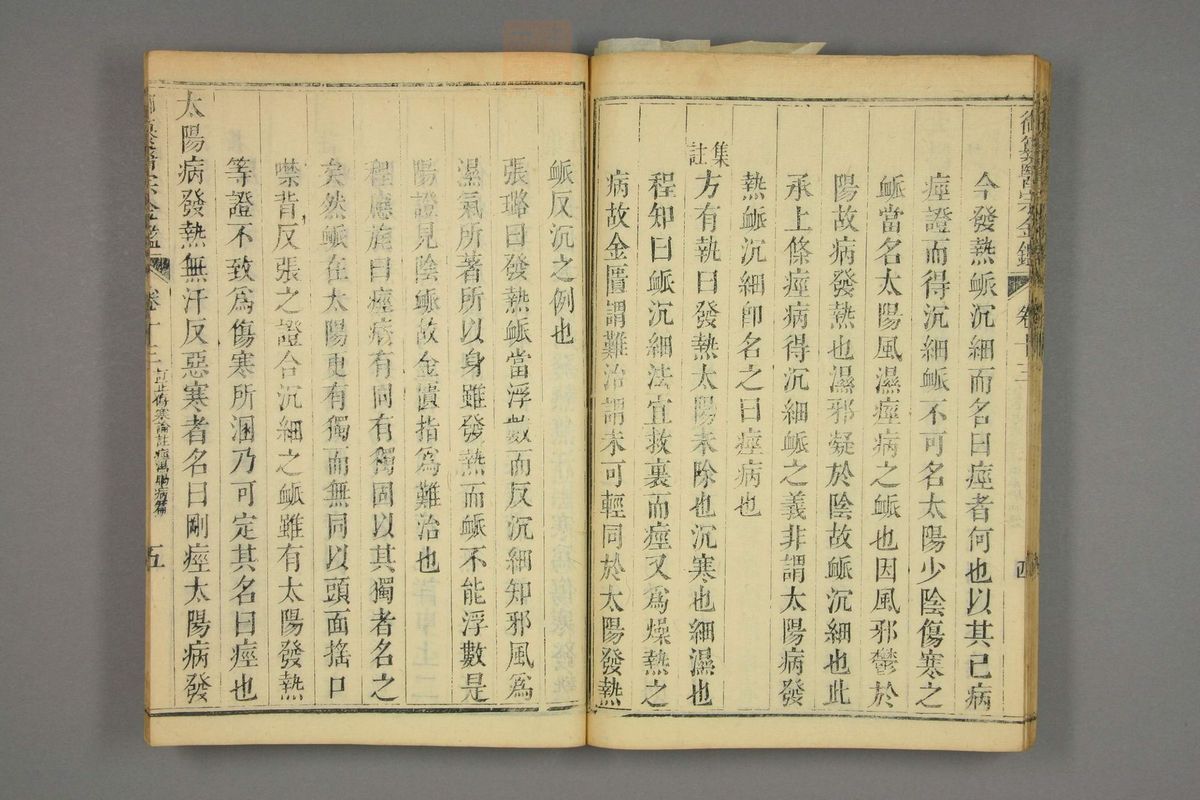 御纂醫宗金鑑 卷十三 四
今發熱脈沉細而名曰痙者何也以其已病
痙證而得沉細脈不可名太陽少陰傷寒之
脈當名太陽風濕痙病之脈也因風邪鬱於
陽故病發熱也濕邪凝於陰故脈沉細也此
承上條痙病得沉細脈之義非謂太陽病發
熱脈沉細卽名之曰痙病也
集註
方有執曰發熱太陽未除也沉寒也細濕也
程知曰脈沉細法宜救裏而痙又爲燥熱之
病故金匱謂難治謂未可輕同於太陽發熱
脈反沉之例也
張璐曰發熱脈當浮數而反沉細知邪風爲
濕氣所著所以身雖發熱而脈不能浮數是
陽證見陰脈故金匱指爲難治也
程應旄曰痙病有同有獨固以其獨者名之
矣然脈在太陽更有獨而無同以頭面搖口
噤背反張之證合沉細之脈雖有太陽發熱
等證不致爲傷寒所溷乃可定其名曰痙也
太陽病發熱無汗反惡寒者名曰剛痙太陽病發
御纂醫宗金鑑 卷十三 訂正傷寒論註痙濕暍病篇 五